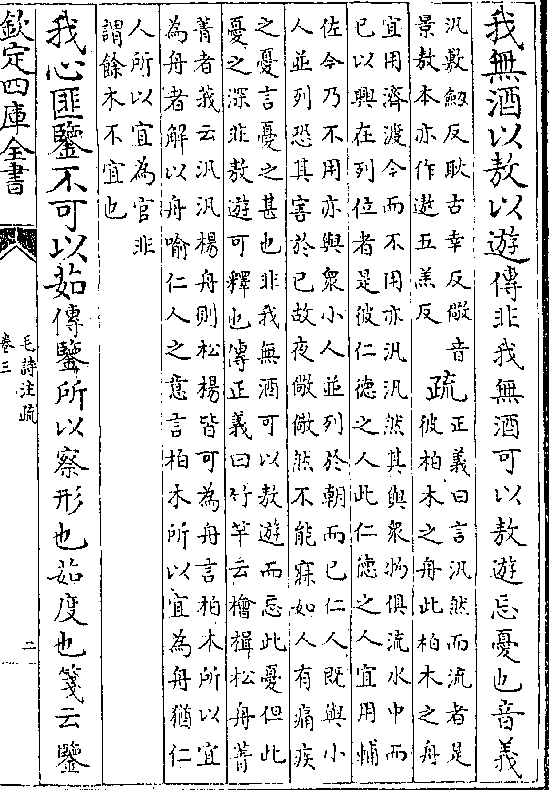 我無酒以敖以遊傳非我無酒可以敖遊忘憂也音義
汎敷劔反耿古幸反儆音
景敖本亦作遨五羔反
疏
正義曰言汎然而流者是
彼柏木之舟此柏木之舟
宜用濟渡今而不用亦汎汎然其與衆物俱流水中而
已以興在列位者是彼仁德之人此仁德之人宜用輔
佐今乃不用亦與衆小人並列於朝而已仁人既與小
人並列恐其害於已故夜儆儆然不能寐如人有痛疾
之憂言憂之甚也非我無酒可以敖遊而忘此憂但此
憂之深非敖遊可釋也傳正義曰竹竿云檜楫松舟菁
菁者莪云汎汎楊舟則松楊皆可為舟言柏木所以宜
為舟者解以舟喻仁人之意言柏木所以宜為舟猶仁
人所以宜為官非
謂餘木不宜也
我心匪鑒不可以茹傳鑒所以察形也茹度也箋云鑒
欽定四庫全書
毛詩注疏
卷三
二